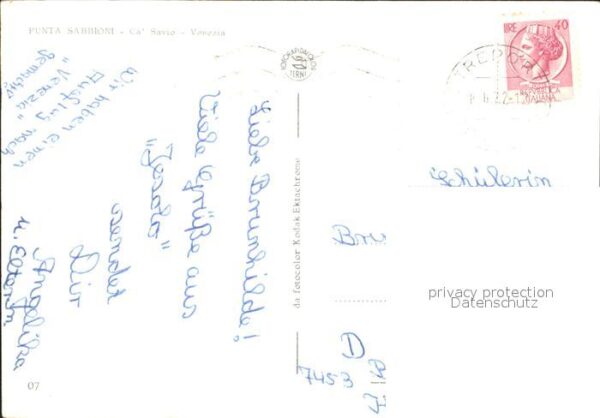 PUNTA SABBIONI - Ca' Savio - Venezia
Liebe Brunhilde!
Viele Grüße aus
"Jesolo"
sendet
Dir
Angelika
u. Eltern.
Wir haben einen
Ausflug nach
"Venezia"
gemacht!
da fotocolor Kodak Ektachrome
07
LIRE 40
REPUBBLICA
ITALIANA
TREPORTI
TERNI
Schülerin
Bru
D
7453
privacy protection
Datenschutz